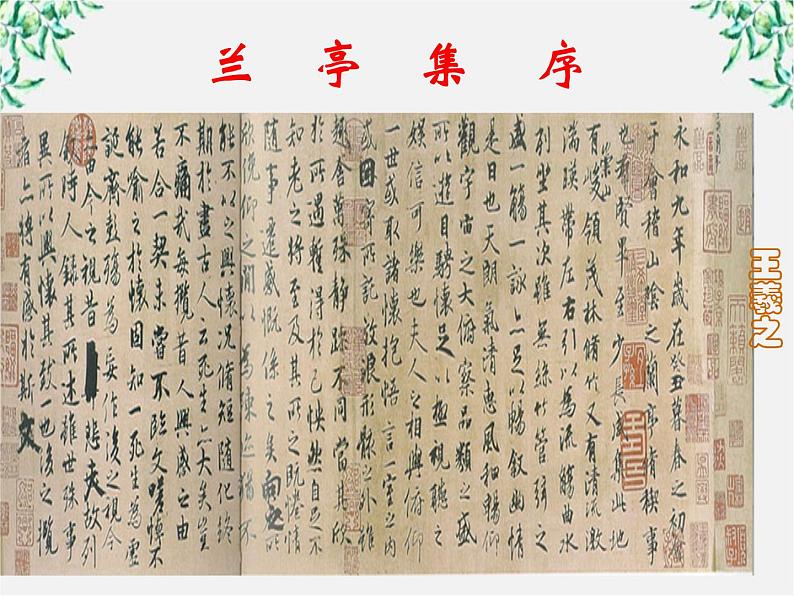 兰亭集序
永和九年歲在癸丑暮春之初會
于會稽山陰之蘭亭脩稧事
也羣賢畢至少長咸集此地
有崇山峻領茂林脩竹又有清流激
湍暎帶左右引以為流觴曲水
列坐其次雖無絲竹管弦之
盛一觴一詠亦足以暢敘幽情
是日也天朗氣清惠風和暢仰
觀宇宙之大俯察品類之盛
所以遊目騁懷足以極視聽之
娛信可樂也夫人之相與俯仰
一世或取諸懷抱悟言一室之內
或因寄所託放浪形骸之外雖
趣舍萬殊靜躁不同當其欣
於所遇蹔得於己怏然自足不
知老之將至及其所之既惓情
隨事遷感慨係之矣向之所
欣俛仰之閒以為陳迹猶不
能不以之興懷況脩短隨化終
期於盡古人云死生亦大矣豈
不痛哉每攬昔人興感之由
若合一契未嘗不臨文嗟悼不
能喻之於懷固知一死生為虛
誕齊彭殤為妄作後之視今
亦由今之視昔悲夫故列
敘時人錄其所述雖世殊事
異所以興懷其致一也後之攬
者亦將有感於斯文
王羲之